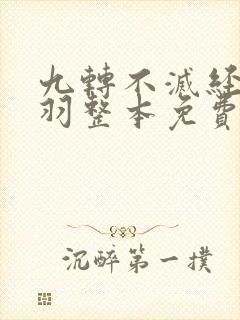 九轉不滅経
羽整本免費
沉醉第一撲